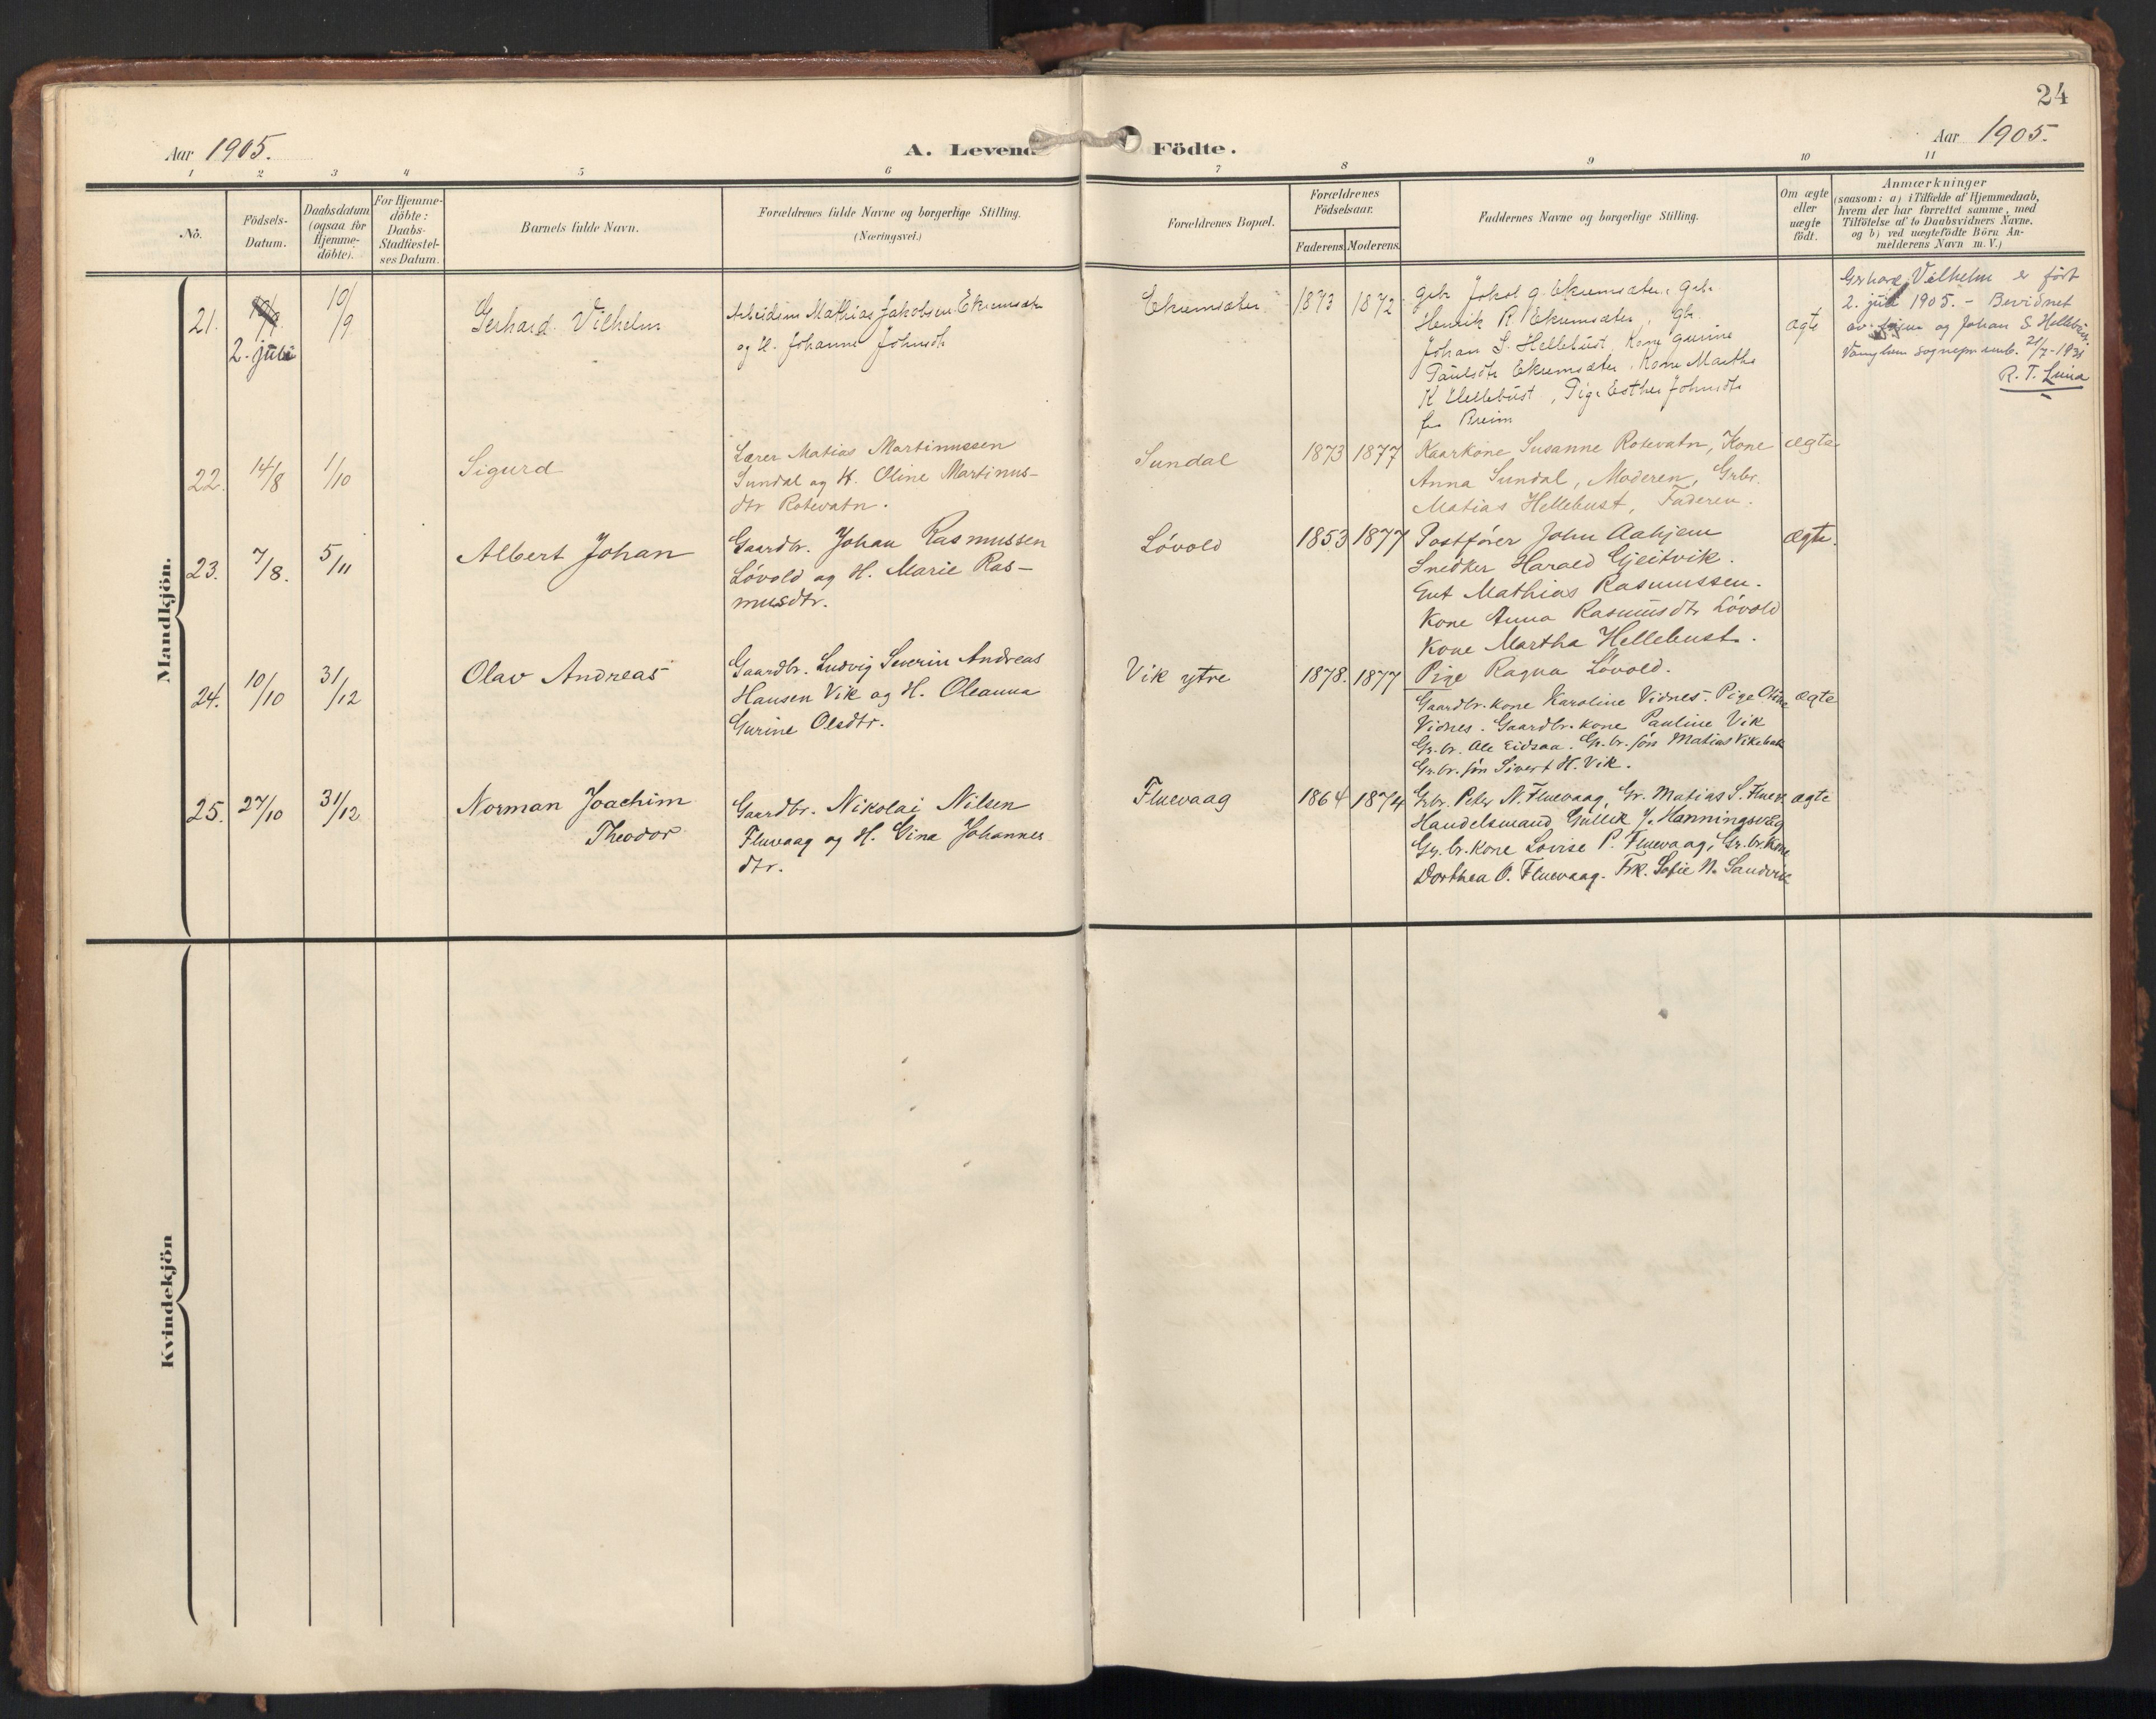 24
Aar 1905.
A. Levende Födte.
Aar 1905.
1 2 3 4 5 6 7 8 9 10 11
No.
Födsels-
Datum.
Daabsdatum
(ogsaa for
Hjemme-
döbte).
For Hjemme-
döbte:
Daabs-
Stadfæstel-
ses Datum.
Barnets fulde Navn.
Forældrenes fulde Navne og borgerlige Stilling.
(Næringsvei.)
Forældrenes Bopæl.
Forældrenes
Födselsaar.
Faderens. Moderens.
Faddernes Navne og borgerlige Stilling.
Om ægte
eller
uægte
födt.
Anmærkninger
(saasom: a) i Tilfælde af Hjemmedaab,
hvem der har forrettet samme, med
Tilföielse af to Daabsvidners Navne.
og b) ved uægtefödte Börn An-
melderens Navn m. V.)
Mandkjön.
21.
2. juli
10/9
Gerhard Vilhelm
Arbeidsm Mathias Jakobsen Ekremsæter
og H. Johanne Johnsdtr
Ekremsæter
1873 1872
Gbr Jakob G. Ekremsæter, Gbr.
Henrik R. Ekremsæter, Gbr
Johan S. Hellebust, Kone Gurine
Paulsdtr Ekremsæter, Kone Martha
K Hellebust, Pige Esther Johnsdtr
fra Breim
ægte
Gerhard Vilhelm er født
2. juli 1905. - Bevidnet
av og Johan S. Hellebust.
sognepremb. 21/7-1931
22.
14/8
1/10
Sigurd
Lærer Matias Martinussen
Sundal og H. Oline Martinus-
dtr Rotevatn.
Sundal
1873 1877
Kaarkone Susanne Rotevatn, Kone
Anna Sundal, Moderen, Grbr.
Matias Hellebust, Faderen.
ægte
23.
7/8.
5/11
Albert Johan
Gaardbr. Johan Rasmussen
Lövold og H. Marie Ras-
musdtr.
Lövold
1853 1877
Postförer John Aahjem
Snedker Harald Gjeitvik.
Gut Mathias Rasmussen.
Kone Anna Rasmusdtr Lövold
Kone Martha Hellebust.
Pige Ragna Lövold.
ægte.
24.
10/10
31/12
Olav Andreas
Gaardbr. Ludvig Severin Andreas
Hansen Vik og H. Oleanna
Gurine Olsdtr.
Vik ytre
1878. 1877
Gaardbr. kone Karoline Vidnes. Pige Oline
Vidnes. Gaardbr. kone Pauline Vik
Gr. br. Ole Eidsaa. Gr. br. sön Matias Vikebak
Gr. br. sön Sivert H. Vik.
ægte
25.
27/10
31/12
Norman Joachim
Theodor
Gaardbr. Nikolai Nilsen
Fluevaag og H. Gina Johannes
dtr.
Fluevaag
1864 1874
Grbr. Peter N. Fluevaag, Gr. Matias S. Fluev.
Handelsmand Gullik J. Hanningsvåg
Gr. br. kone Lovise P. Fluevaag, Gr. br. kone
Dorthea O. Fluevaag. Frk. Sofie N. Sandvik
ægte
Kvindekjön